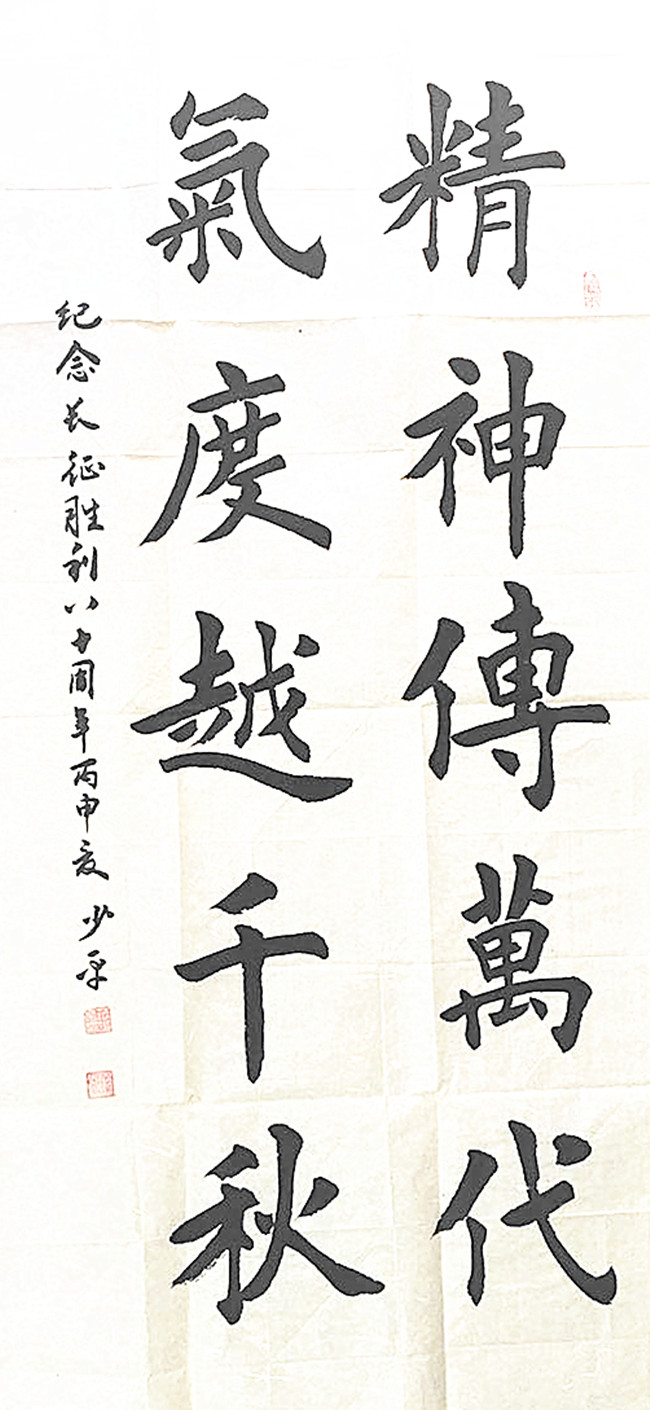 精神傳萬代
氣度越千秋
纪念长征胜利八十周年丙申夏 少平